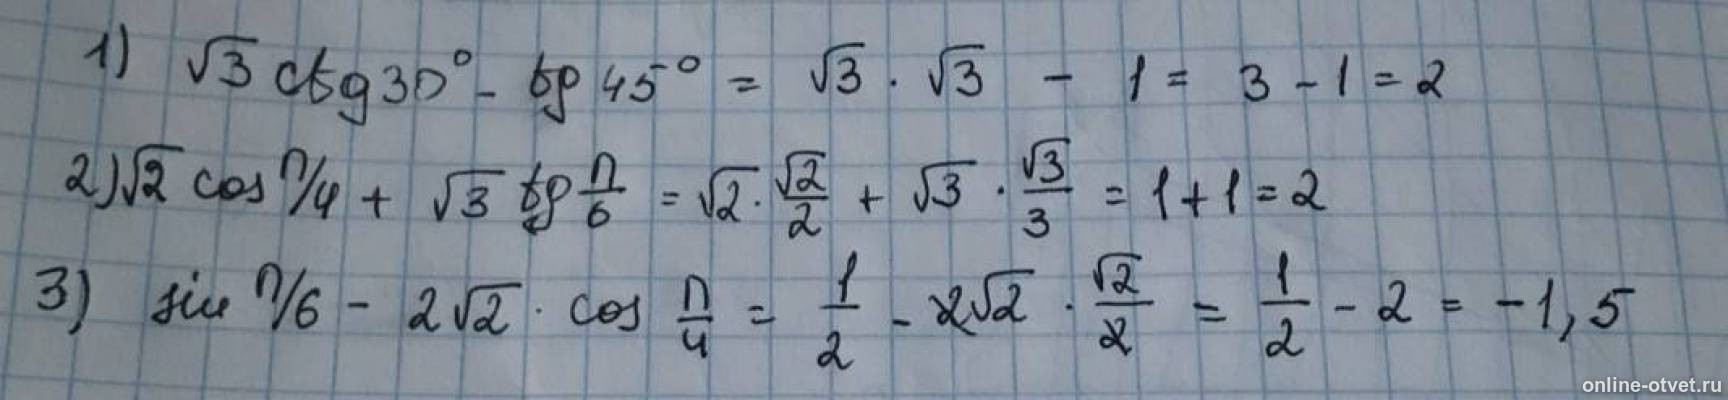 1) √3 ctg 30° - tg 45° = √3 · √3 - 1 = 3 - 1 = 2
2) √2 cos π/4 + √3 tg π/6 = √2 · √2/2 + √3 · √3/3 = 1 + 1 = 2
3) sin π/6 - 2√2 · cos π/4 = 1/2 - 2√2 · √2/2 = 1/2 - 2 = -1,5
online-otvet.ru